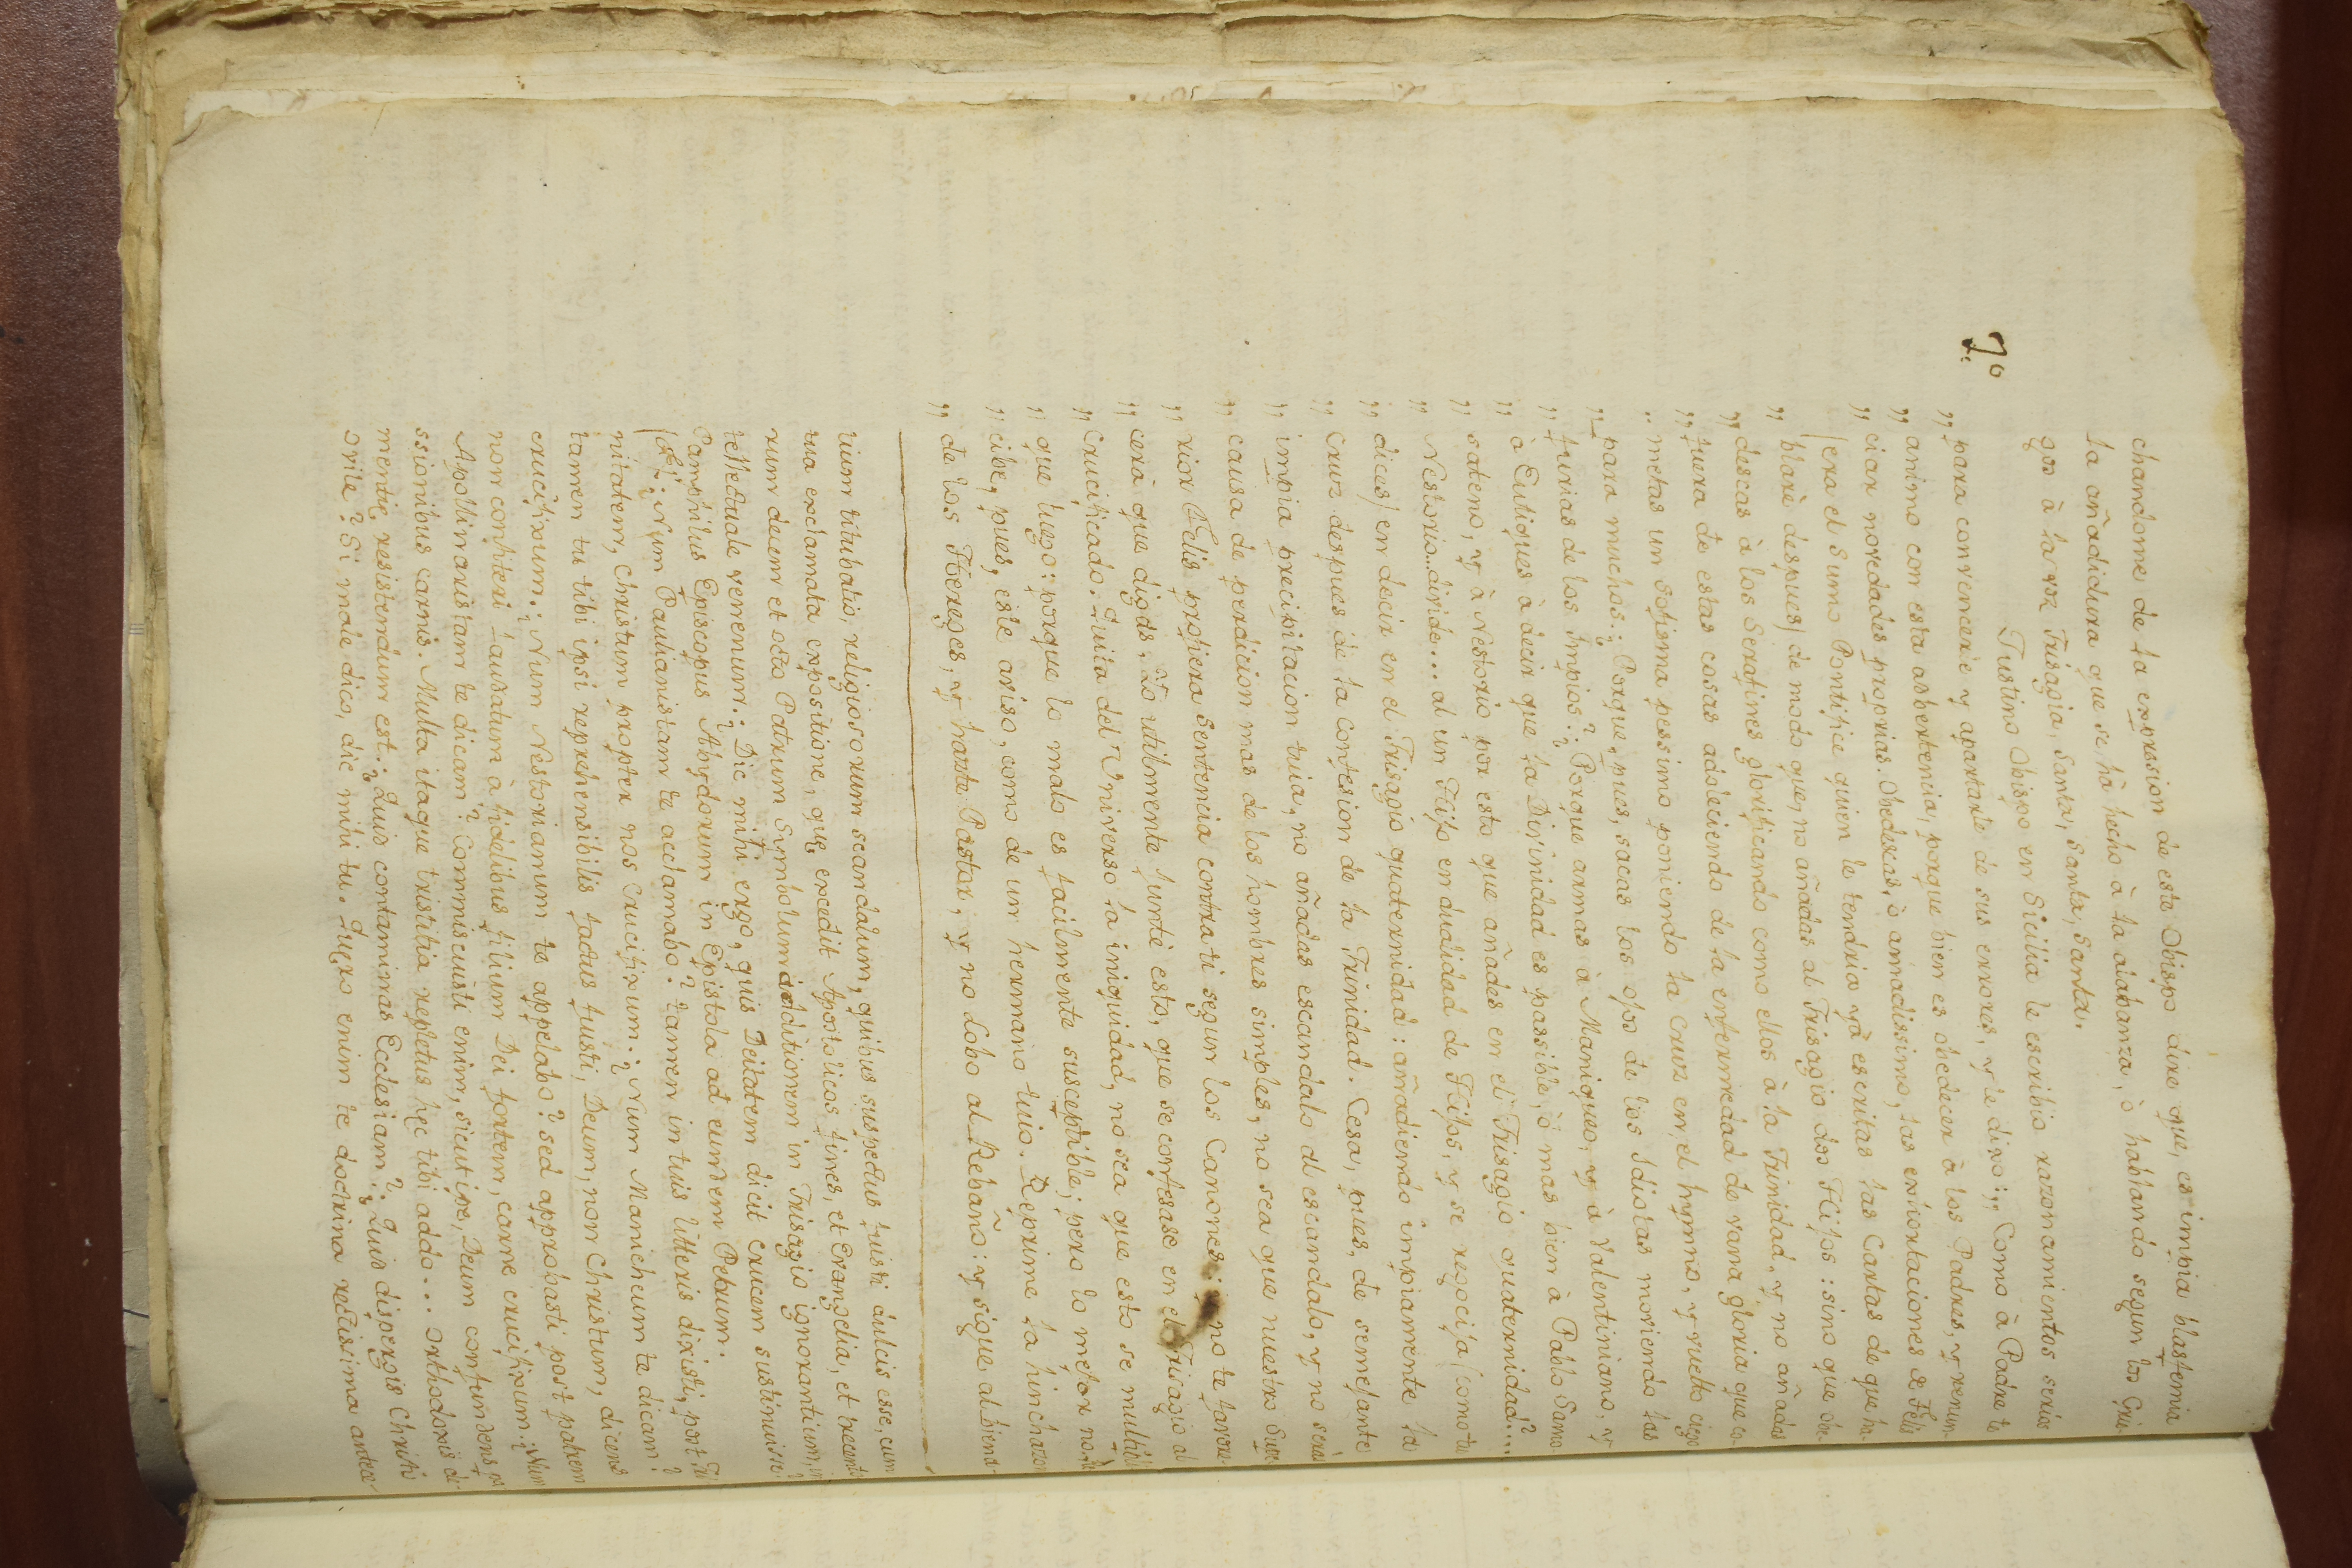 chandome de la expresion de esto Obispo dire que, es impia blasfemia
la añadidura que se hà hecho à la alabanza, ò hablando segun los Grie-
gos à la voz Trisagia, Santa, Santa, Santa.
Justino Obispo en Sicilia le escribio razonamientos serios
7.
„ para convencerle y apartarle de sus errores, y le dixo: „ Como à Padre te
„ animo con esta adbertencia, porque bien es obedecer à los Padres, y renun-
„ ciar novedades proprias. Obedezcas, ò amadissimo, las exhortaciones de Felis
(era el Sumo Pontifice quien le tendria yà escritas las Cartas de que ha-
„ blarè despues) de modo que, no añadas al Trisagio dos Hijos: sino que de-
„ descas à los Serafines glorificando como ellos à la Trinidad, y no añadas
„ fuera de estas cosas adoleciendo de la enfermedad de vana gloria que co-
„ metas un sofisma pessimo poniendo la Cruz en el hymno, y vuelto ciego
„ para muchos: Porque, pues, sacas los ojos de los Idiotas moviendo las
„ furias de los Impios? Porque armas à Maniqueo, y à Valentiniano, y
„ à Eutiques à decir que la Divinidad es passible, ò mas bien à Pablo Samo
„ sateno, y à Nestorio por esto que añades en el Trisagio quaternidad?...
„ Nestorio.. divide... al un Hijo en dualidad de Hijos, y se regocija (como tu
„ dices) en decir en el Trisagio quaternidad: añadiendo impiamente la
„ Cruz despues de la confesion de la Trinidad. Cesa, pues, de semejante
„ impia precipitacion tuia, no añadas escandalo al escandalo, y no seràs
„ causa de perdicion mas de los hombres simples, no sea que nuestro Supe-
„ rior Felis profiera Sentencia contra ti segun los Canones: no te favore-
„ cerà que digas: Io utilmente juntè esto, que se confesase en el Trisagio al
„ Crucificado. Quita del Universo la iniquidad, no sea que esto se multipli-
„ que luego: porque lo malo es facilmente susceptible; pero lo mejor no. Re-
„ cibe, pues, este aviso, como de un hermano tuio. Reprime la hinchazon
„ de los Hereges, y hazte Pastor, y no Lobo al Rebaño: y sigue al biena-
vium titubatio, religiosorum scandalum, quibus suspectus fuisti dulcis esse, cum
tua exclamata expositione, quę excedit Apostolicos fines, et Evangelia, et trecento-
rum decem et octo Patrum Symbolum additionem in Trisagio ignorantium, in-
tellectuale venenum. Dic mihi ergo, quis Deitatem dicit crucem sustinuisse?
Pamphilus Episcopus Abydorum in Epistola ad eundem Petrum.
Num Paulianistam te acclamabo? tamen in tuis litteris dixisti, post Tri-
nitatem, Christum propter nos Crucifixum. Num Manicheum te dicam?
tamen tu tibi ipsi reprehensibilis factus fuisti, Deum, non Christum, dicens
crucifixum. Num Nestorianum te appelabo? sed approbasti post patrem
non confiteri laudatum à fidelibus filium Dei fortem, carne crucifixum. Num
Apollinaristam te dicam? Commiscuisti enim, sicut ipse, Deum confundens pa-
ssionibus carnis. Multa itaque tristitia repletus hęc tibi addo... orthodoxis di-
mentię resistendum est. Quid contaminas Ecclesiam? Quid dispergis Christi
ovile? Si male dico, dic mihi tu. Quęro enim te doctrina rectissima antece-